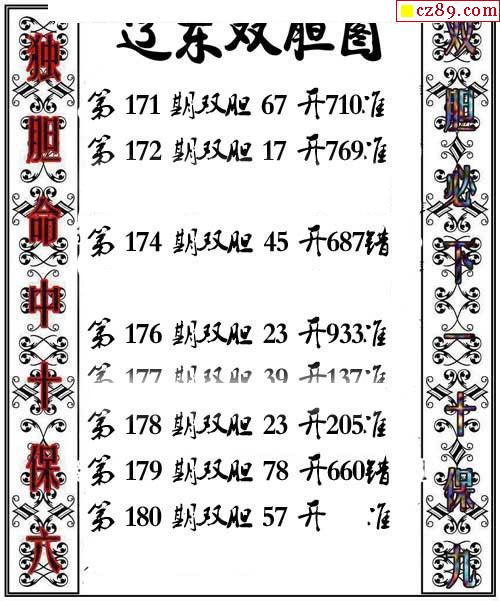 cz89.com
辽东双胆图
独胆命中十保六
双胆必下一十保九
第 171 期双胆 67 开710准
第 172 期双胆 17 开769准
第 174 期双胆 45 开687错
第 176 期双胆 23 开933准
第 177 期双胆 39 开137准
第 178 期双胆 23 开205准
第 179 期双胆 78 开660错
第 180 期双胆 57 开 准